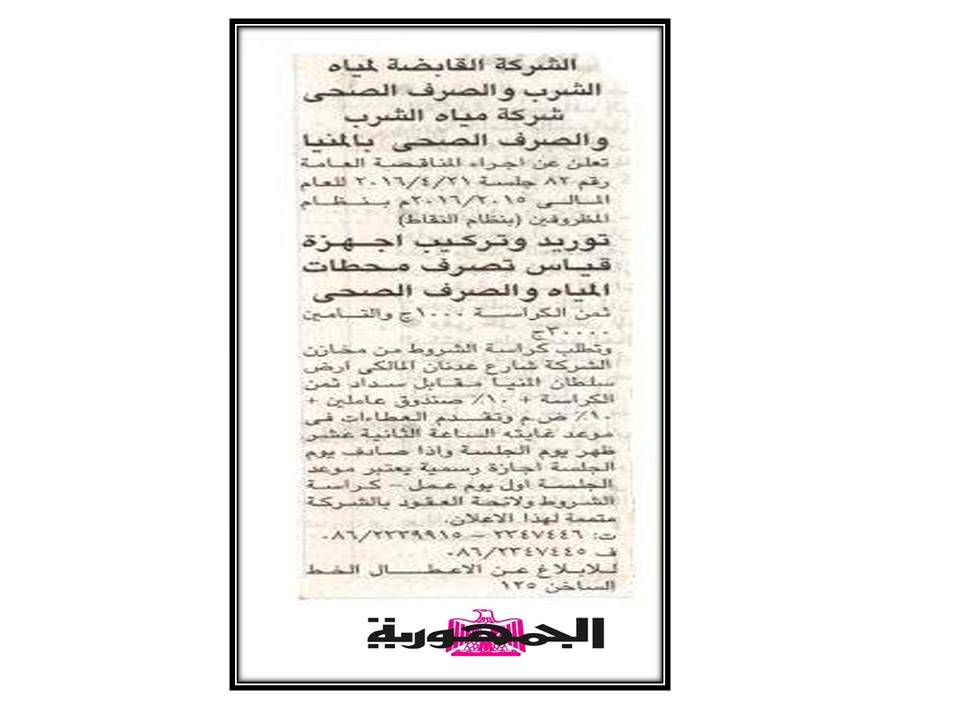 الشركة القابضة لمياه
الشرب والصرف الصحى
شركة مياه الشرب
والصرف الصحى بالمنيا
تعلن عن اجراء المناقصة العامة
رقم ٨٢ جلسة ٢٠١٦/٤/٢١ للعام
المالى ٢٠١٦/٢٠١٥م بنظام
المظروفين (بنظام النقاط)
توريد وتركيب اجهزة
قياس تصرف محطات
المياه والصرف الصحى
ثمن الكراسة ١٠٠٠ج والتامين
٣٠٠٠٠ج
وتطلب كراسة الشروط من مخازن
الشركة شارع عدنان المالكى ارض
سلطان المنيا مقابل سداد ثمن
الكراسة + ١٠٪ صندوق عاملين +
١٠٪ ض.م وتقدم العطاءات فى
موعد غايته الساعة الثانية عشر
ظهر يوم الجلسة واذا صادف يوم
الجلسة اجازة رسمية يعتبر موعد
الجلسة اول يوم عمل – كراسة
الشروط ولائحة العقود بالشركة
متممة لهذا الاعلان.
ت: ٢٣٤٧٤٤٦ – ٠٨٦/٢٣٣٩٩١٥
ف ٠٨٦/٢٣٤٧٤٤٥
للابلاغ عن الاعطال الخط
الساخن ١٢٥
الجمهورية